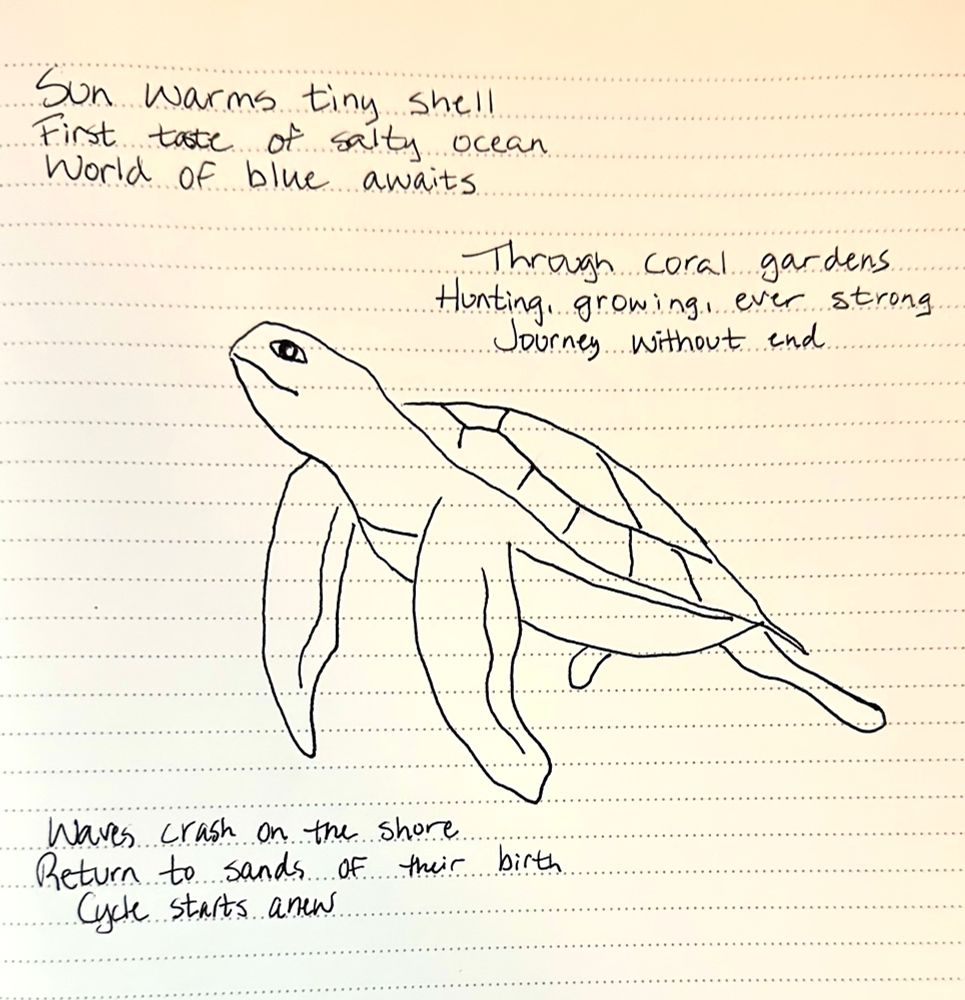 Sun warms tiny shell
First taste of salty ocean
World of blue awaits
Through coral gardens
Hunting, growing, ever strong
Journey without end
Waves crash on the shore
Return to sands of their birth
Cycle starts anew